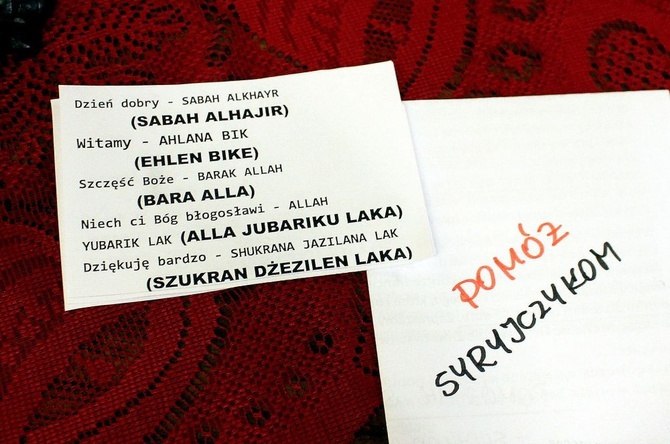 Dzień dobry - SABAH ALKHAYR
(SABAH ALHAJIR)
Witamy - AHLANA BIK
(EHLEN BIKE)
Szczęść Boże - BARAK ALLAH
(BARA ALLA)
Niech ci Bóg błogosławi - ALLAH
YUBARIK LAK (ALLA JUBARIKU LAKA)
Dziękuję bardzo - SHUKRANA JAZILANA LAK
(SZUKRAN DŻEZILEN LAKA)
POMÓŻ
SYRYJCZYKOM